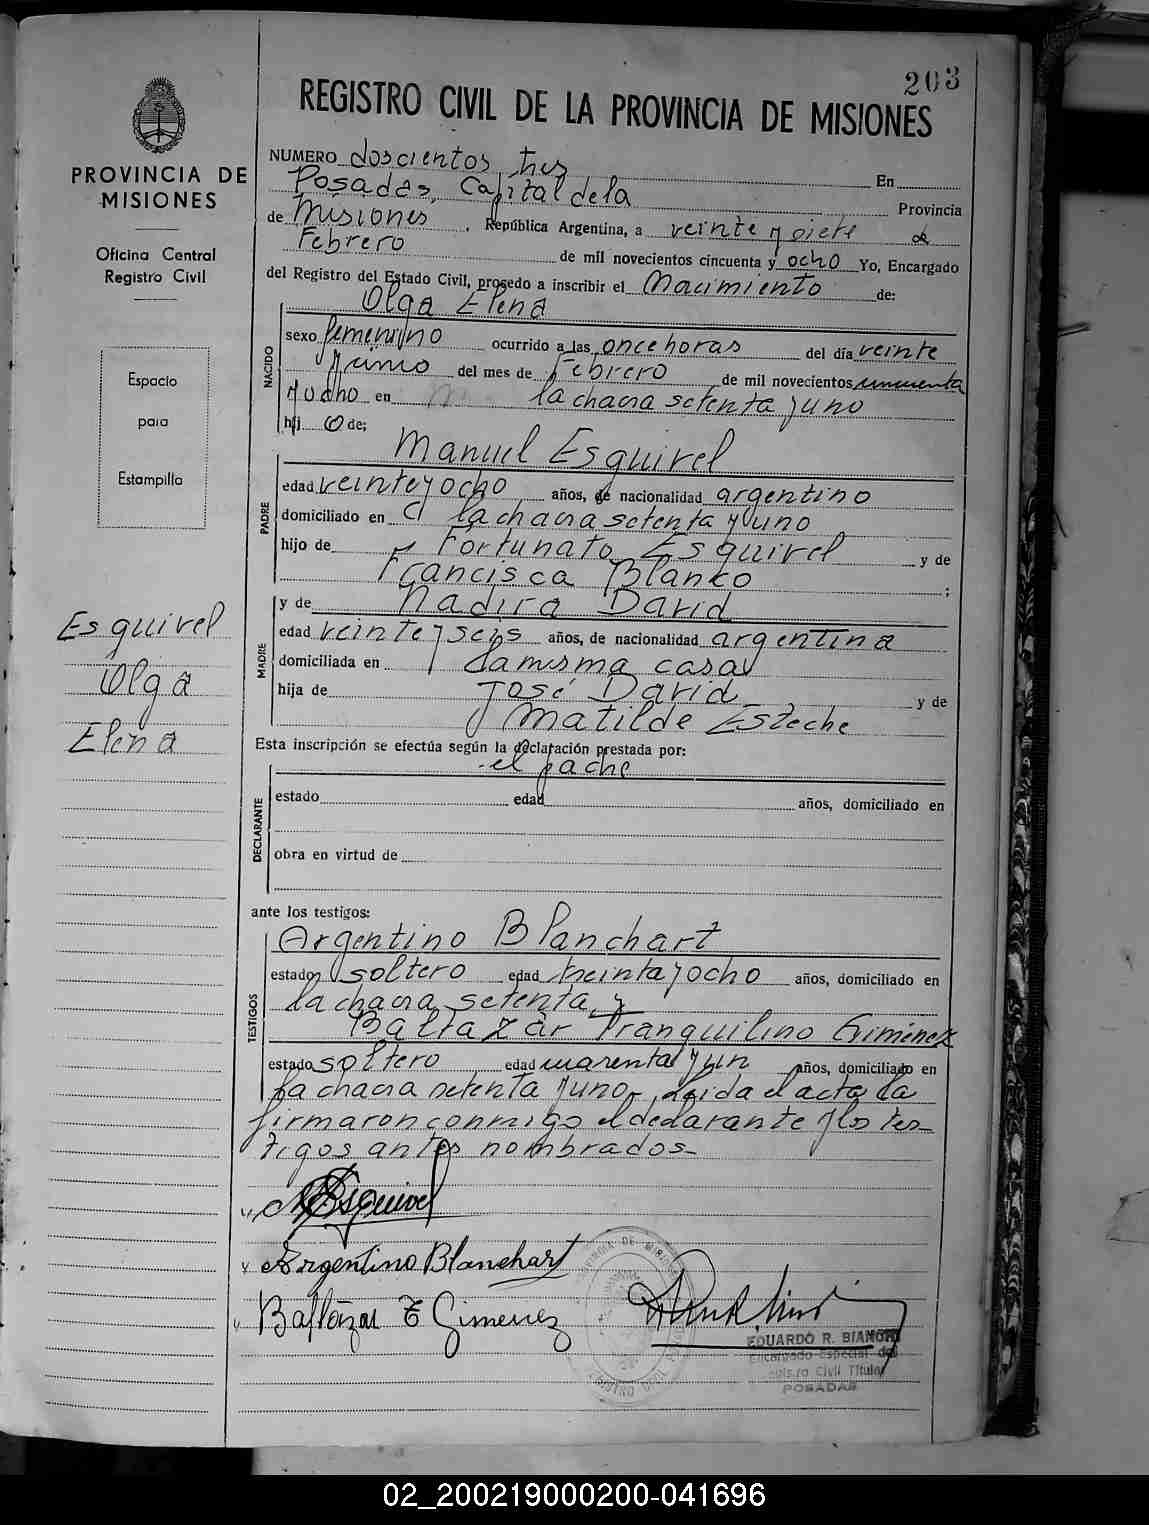 203
REGISTRO CIVIL DE LA PROVINCIA DE MISIONES
PROVINCIA DE
MISIONES
Oficina Central
Registro Civil
Espacio
para
Estampilla
Esquivel
Olga
Elena
NUMERO doscientos tres En
Posadas, Capital de la Provincia
de Misiones, República Argentina, a veinte y siete de
Febrero de mil novecientos cincuenta y ocho Yo, Encargado
del Registro del Estado Civil, procedo a inscribir el Nacimiento de:
Olga Elena
NACIDO
sexo femenino ocurrido a las once horas del día veinte
del mes de Febrero de mil novecientos cincuenta
y ocho en la chacra setenta y uno
hij de;
Manuel Esquivel
PADRE
edad veinte y ocho años, de nacionalidad argentino
domiciliado en la chacra setenta y uno
hijo de Fortunato Esquivel y de
Francisca Blanco ;
y de Nadira David
MADRE
edad veinte y seis años, de nacionalidad argentina
domiciliada en la misma casa
hija de José David y de
Matilde Esteche
Esta inscripción se efectúa según la declaración prestada por:
el padre
DECLARANTE
estado edad años, domiciliado en
obra en virtud de
ante los testigos:
Argentino Blanchart
TESTIGOS
estado soltero edad treinta y ocho años, domiciliado en
la chacra setenta y
Baltazar Tranquilino Giménez
estado soltero edad cuarenta y un años, domiciliado en
la chacra setenta y uno. Leida el acta la
firmaron conmigo el declarante y los tes-
tigos antes nombrados-
M Esquivel
Argentino Blanchart
Baltazar T Gimenez
EDUARDO R. BIANCHI
Encargado Especial del
Registro Civil Titular
POSADAS
02_200219000200-041696